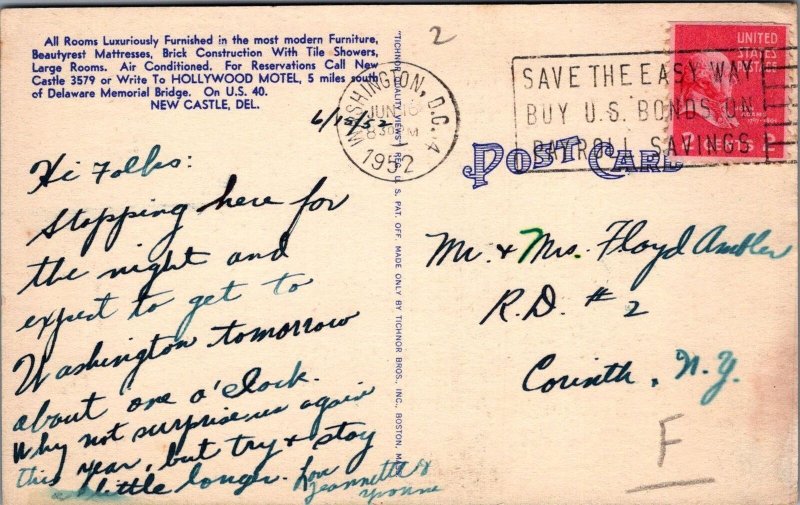 All Rooms Luxuriously Furnished in the most modern Furniture,
Beautyrest Mattresses, Brick Construction With Tile Showers,
Large Rooms. Air Conditioned. For Reservations Call New
Castle 3579 or Write To HOLLYWOOD MOTEL, 5 miles south
of Delaware Memorial Bridge. On U.S. 40.
NEW CASTLE, DEL.
6/15/52
Hi Folks:
Stopping here for
the night and
expect to get to
Washington tomorrow
about one o'clock.
Why not surprise us again
this year, but try & stay
a little longer. Lou
Jeannette &
Yvonne
"TICHNOR QUALITY VIEWS" REG. U. S. PAT. OFF. MADE ONLY BY TICHNOR BROS., INC., BOSTON,
2
WASHINGTON, D.C. 4
JUN 16
8 30 PM
1952
SAVE THE EASY WAY
BUY U.S. BONDS ON
PAYROLL SAVINGS
UNITED
STATES
POST CARD
Mr. & Mrs. Floyd Ambler
R.D. #2
Corinth, N.Y.
F